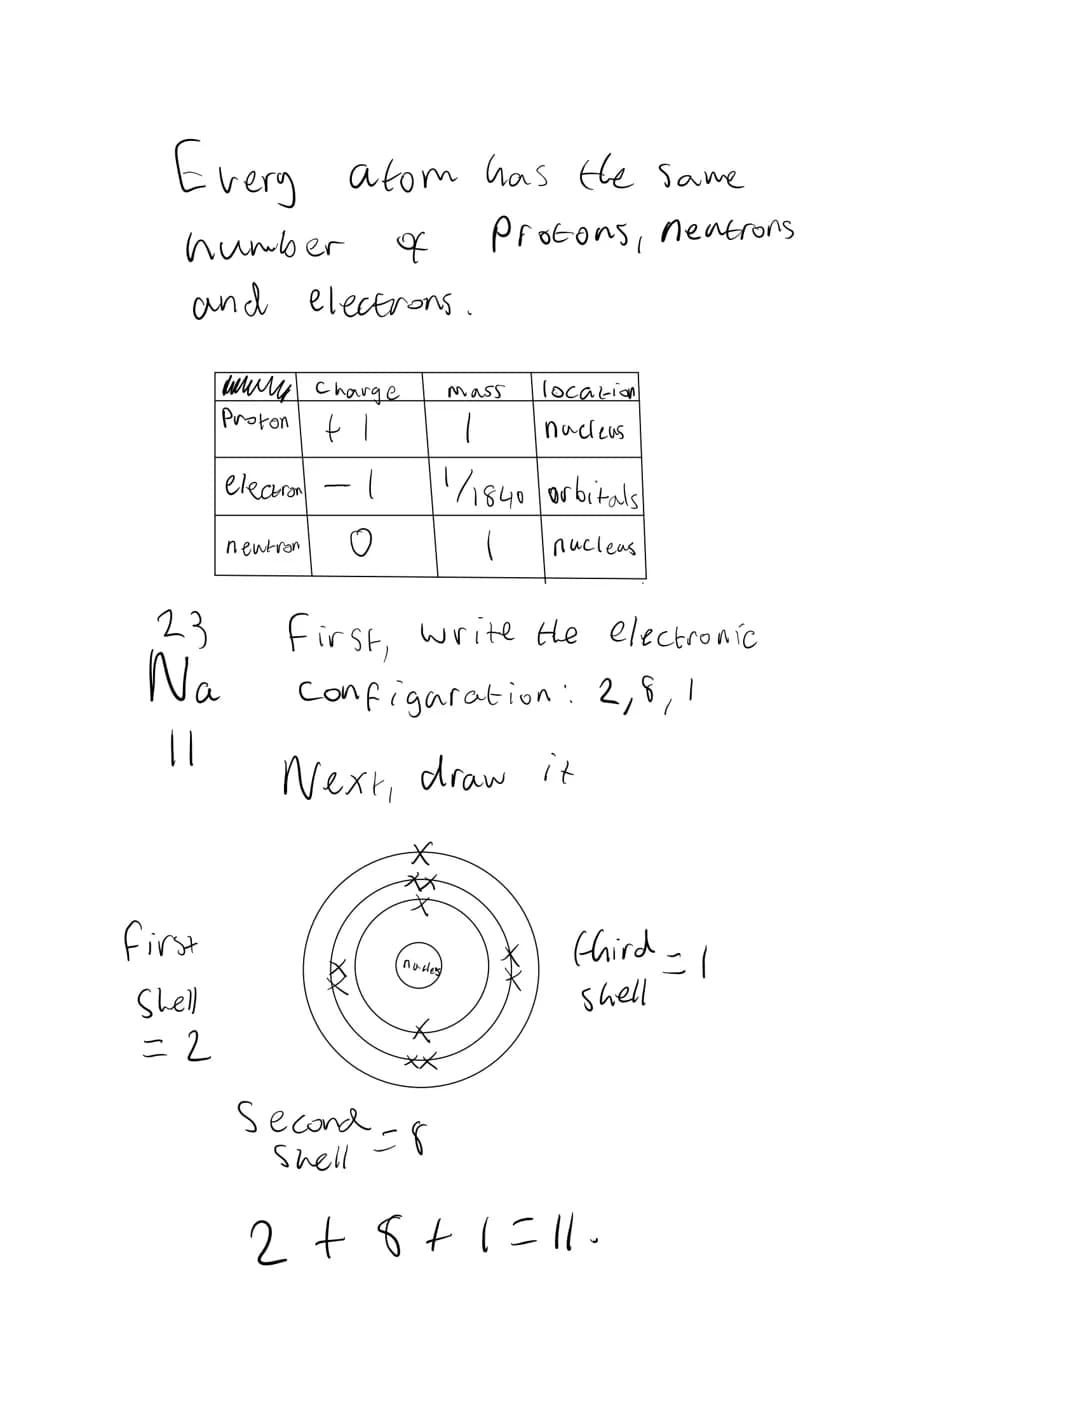 Every atom has the same
number of Protons, neutrons
and electrons.
Charge mass location
Proton +1 1 nucleus
electron -1 1/1840 orbitals
newtron 0 1 nucleus
23
Na
11
First, write the electronic
configaration: 2,8,1
Next, draw it
X
XX
X
nucleus
X X
X X
X
XX
first
shell
= 2
third = 1
shell
Second = 8
shell
2 + 8 + 1 = 11.